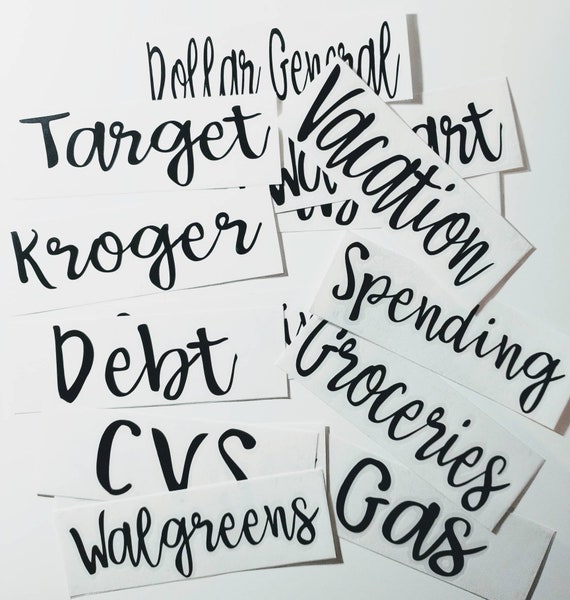 Dollar General
Target
Vacation
Kroger
Spending
Debt
Groceries
CVS
Gas
Walgreens